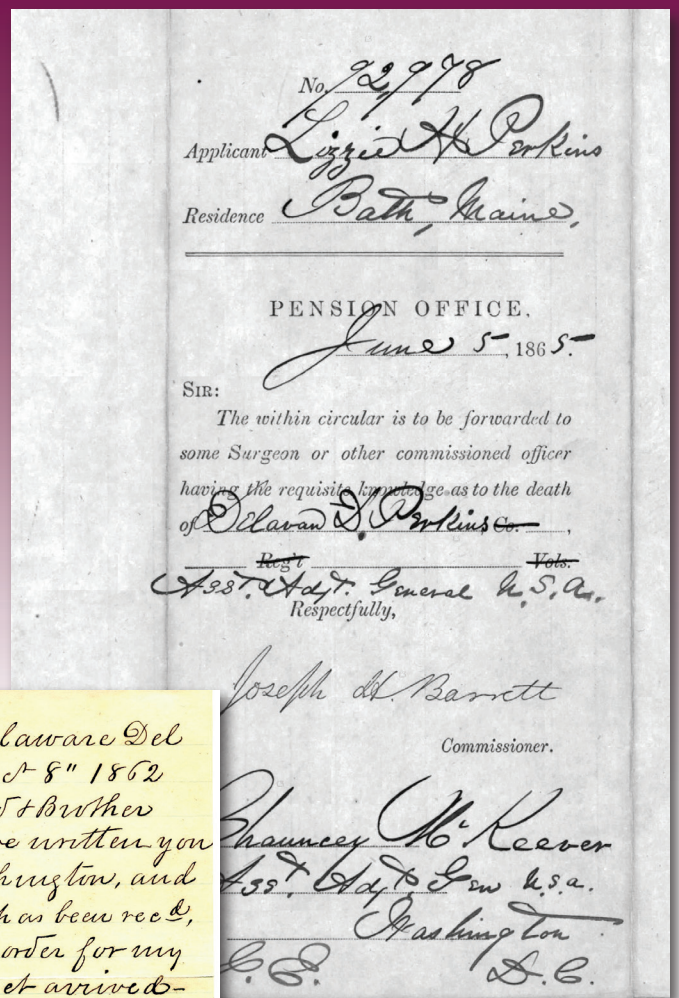 No. 92,978
Applicant Lizzie H Perkins
Residence Bath, Maine,
PENSION OFFICE,
June 5, 1865.
SIR:
The within circular is to be forwarded to
some Surgeon or other commissioned officer
having the requisite knowledge as to the death
of Delavan D. Perkins Co. ,
Reg't Vols.
Asst. Adjt. General U.S.A.
Respectfully,
Joseph H. Barrett
Commissioner.
Chauncey McKeever
Asst. Adjt. Gen U.S.A.
Washington
D.C.
laware Del
8" 1862
& Brother
written you
hington, and
has been recd,
order for my
et arrived-